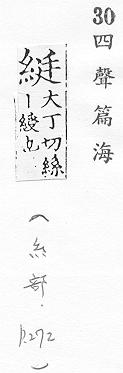 30四聲篇海
綎大丁切絲
丨綬也
(糸部．P.272)